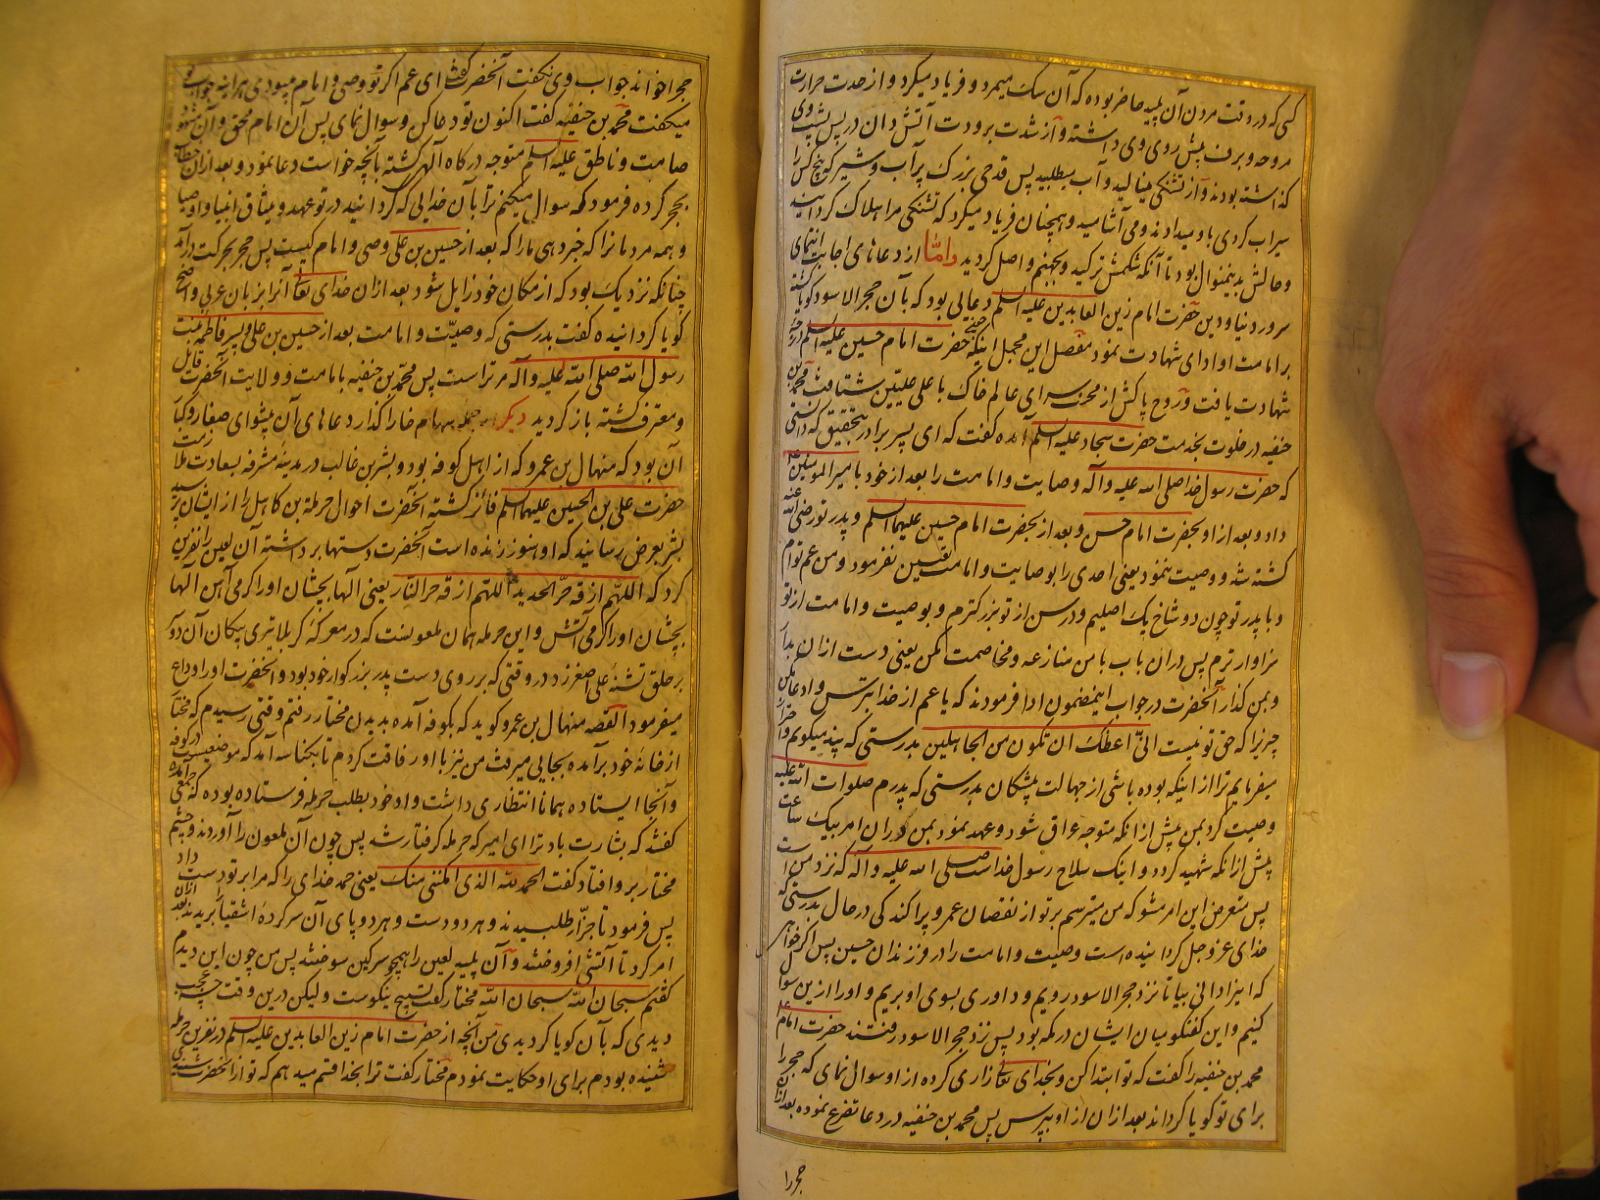 کسی که در وقت مردن آن پلید حاضر بوده که آن سک میمرد و فریاد میکرد و از حدت حرارت
مروحه و برف پیش روی وی داشته و از شدت برودت آتش دان در پس پشت وی
کذاشته بودند و از تشنکی مینالید و آب میطلبید پس قدحی بزرک پر آب و شیر که پنج کس را
سیراب کردی باو میدادند و می آشامید و همچنان فریاد میکرد که تشنکی مرا هلاک کردانید
و حالش بدینمنوال بود تا آنکه شکمش ترکید و بجهنم واصل کردید و امّا از دعاهای اجابت انتمای
سرور دنیا و دین حضرت امام زین العابدین علیه السلم دعائی بود که بآن حجر الاسود کویا کشته
بر امامت او ادای شهادت نمود مفصل این مجمل اینکه چون حضرت امام حسین علیه السلم درجهٔ
شهادت یافت و روح پاکش از محنت سرای عالم خاک با علی علیین شتافت محمد بن
حنفیه در خلوت بخدمت حضرت سجاد علیه السلم آمده کفت که ای پسر برادر بتحقیق که دانستی
که حضرت رسول خدا صلی الله علیه و آله وصایت و امامت را بعد از خود بامیر المومنین علی
داد و بعد از او بحضرت امام حسن و بعد از بحضرت امام حسین علیهما السلم و پدر تو رضی الله عنه
کشته شد و وصیت ننمود یعنی احدی را بوصایت و امامت تعیین نفرمود و من عم توام
و با پدر تو چون دو شاخ یک اصلیم و در سن از تو بزرکترم و بوصیت و امامت از تو
سزاوارترم پس در ان باب با من منازعه و مخاصمت مکن یعنی دست از ان بدار
و بمن کذار آنحضرت در جواب اینمضمون ادا فرمودند که یا عم از خدا بترس و ادعا مکن
چیزیرا که حق تو نیست انی اعظک ان تکون من الجاهلین بدرستی که پند میکویم و
میفرمایم ترا از اینکه بوده باشی از جهالت پیشکان بدرستی که پدرم صلوات الله علیه
وصیت کرد بمن پیش از انکه متوجه عراق شود و عهد نمود بمن در ان امر بیک ساعت
پیش از انکه شهید کردد و اینک سلاح رسول خداست صلی الله علیه و آله که نزد من است
پس متعرض این امر مشو که من میترسم بر تو از نقصان عمر و پراکندکی در حال بدرستی که
خدای عز و جل کردانیده است وصیت و امامت را در فرزندان حسین پس اکر خواهی
که اینرا دانی بیا تا نزد حجر الاسود رویم و داوری بسوی او بریم و او را ازین سوال
کنیم و این کفتکو میان ایشان در مکه بود پس نزد حجر الاسود رفتند حضرت امام
محمد بن حنفیه را کفت که تو ابتدا کن و بخدای تعالی زاری کرده از او سوال نمای که حجر را
برای تو کویا کرداند بعد از ان از او بپرس پس محمد بن حنفیه در دعا تضرع نموده بعد از ان
حجر را
حجر را خواند جواب وی نکفت آنحضرت کفت ای عم اکر تو وصی و امام میبودی هر اینه جواب تو
میکفت محمد بن حنفیه کفت اکنون تو دعا کن و سوال نمای پس آن امام محق و آن
صامت و ناطق علیه السلم متوجه درکاه اله کشته بآنچه خواست دعا نمود و بعد از ان خطاب
بحجر کرده فرمود که سوال میکنم ترا بآن خدائی که کردانید در تو عهد و میثاق انبیا و اوصیا
و همه مردمانرا که خبر دهی ما را که بعد از حسین بن علی وصی و امام کیست پس حجر بحرکت درآمد
چنانکه نزدیک بود که از مکان خود زایل شود بعد از ان خدای تعالی آنرا بزبان عربی واضح
کویا کردانیده کفت بدرستی که وصیّت و امامت بعد از حسین بن علی و پسر فاطمه بنت
رسول الله صلی الله علیه و آله مر تراست پس محمد بن حنفیه بامامت و ولایت آنحضرت قایل
و معترف کشته باز کردید دیکر از جمله سهام خارا کذار دعاهای آن پیشوای صغار و کبار
آن بود که منهال بن عمرو که از اهل کوفه بود و بشر بن غالب در مدینهٔ مشرفه بسعادت ملازمت
حضرت علی بن الحسین علیهما السلم فائز کشته آنحضرت احوال حرملة بن کاهل را از ایشان پرسید
بشر بعرض رسانید که او هنوز زنده است آنحضرت دستها بر داشته آن لعین را نفرین
کرد که اللهم اذقه حرّ الحدید اللهم اذقه حر النار یعنی آلها بچشان او را کرمی آهن آلها
بچشان او را کرمی آتش و این حرمله همان ملعونست که در معرکهٔ کربلا تیری پیکان آن دو
بر حلق تشنهٔ علی اصغر زد در وقتی که بر روی دست پدر بزرکوار خود بود و آنحضرت او را وداع
میفرمود القصه منهال بن عمرو کوید که بکوفه آمده بدیدن مختار رفتم وقتی رسیدم که مختار
از خانهٔ خود برآمده بجایی میرفت من نیز با او رفاقت کردم تا بکناسه آمد که موضعیست در کوفه
و آنجا ایستاده همانا انتظاری داشت و او خود بطلب حرمله فرستاده بوده که جمعی آمده
کفتند که بشارت باد ترا ای امیر که حرمله کرفتار شد پس چون آن ملعون را آوردند و چشم
مختار بر او افتاد کفت الحمد لله الذی امکننی منک یعنی حمد خدای را که مرا بر تو دست داد
پس فرمود تا جزّار طلبیدند و هر دو دست و هر دو پای آن سرکردهٔ اشقیا را بریدند بعد از ان
امر کرد تا آتشی افروختند و آن پلید لعین را همچو سرکین سوختند پس من چون این دیدم
کفتم سبحان الله سبحان الله مختار کفت تسبیح نیکوست و لیکن درین وقت چه عجب
دیدی که بآن کویا کردیدی من آنچه از حضرت امام زین العابدین علیه السلم در نفرین حرمله
شنیده بودم برای او حکایت نمودم مختار کفت ترا بخدا قسم میدهم که تو از آنحضرت شنیدی